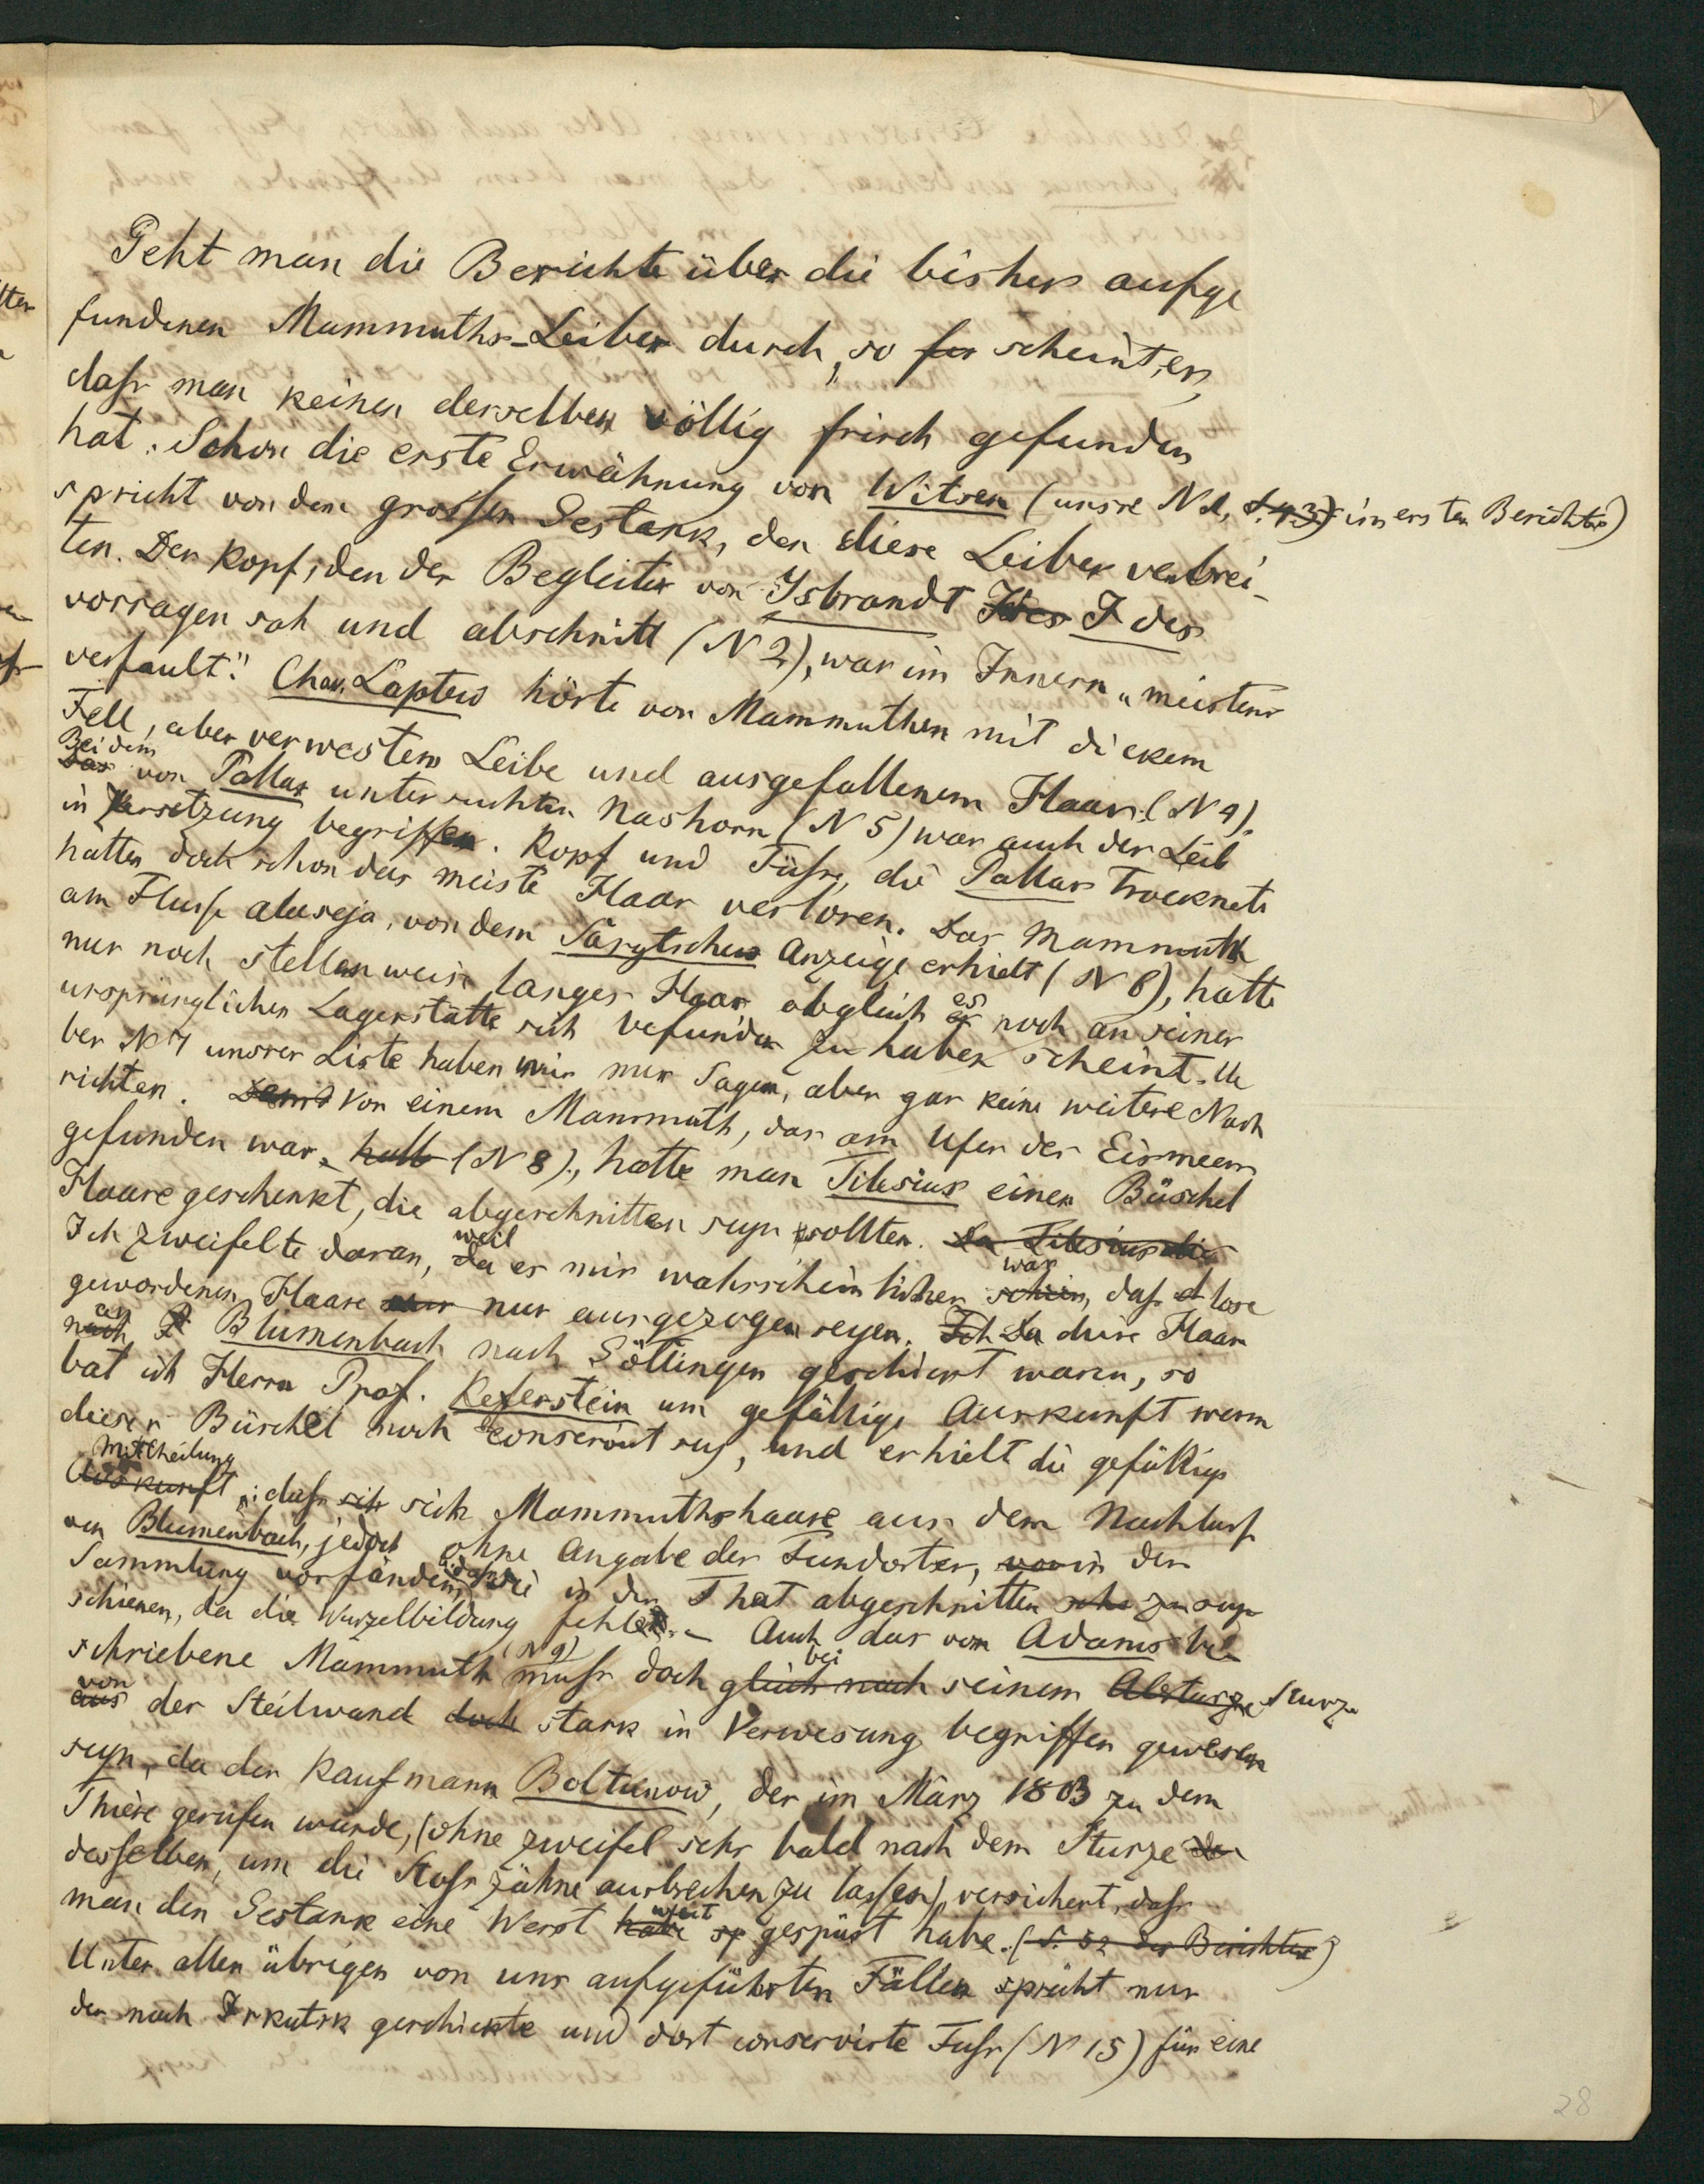 Geht man die Berichte über die bisher aufge
fundenen Mammuths-Leiber durch, so scheint es,
dass man keinen derselben völlig frisch gefunden
hat. Schon die erste Erwähnung von Witsen (unsre N 1, S. 43) im ersten Berichte)
spricht von dem grossen Gestank, den diese Leiber verbrei-
ten. Der Kopf, den der Begleiter von Ysbrandt Ides Ides
vorragen sah und abschnitt (N 2), war im Innern „meistens
verfault“. Char. Laptew hörte von Mammuthen mit dickem
Fell, aber verwestem Leibe und ausgefallenem Haar (N 4).
Bei dem
Das von Pallas untersuchten Nashorn (N 5) war auch der Leib
in Zersetzung begriffen. Kopf und Füsse, die Pallas trocknete
hatten doch schon das meiste Haar verloren. Das Mammuth
am Flusse Alaseja, von dem Sarytschew Anzeige erhielt (N 6), hatte
nur noch stellenweise langes Haar obgleich es noch an seiner
ursprünglichen Lagerstätte sich befunden zu haben scheint. Ue
ber N 7 unsrer Liste haben wir nur Sagen, aber gar keine weitere Nach
richten. Von einem Mammuth, das am Ufer des Eismeers
gefunden war, hatte (N 8), hatte man Tilesius einen Büschel
Haare geschenkt, die abgeschnitten seyn sollten. Da Tilesius die
Ich zweifelte daran, da weil es mir wahrscheinlicher schien war, dass lose
gewordenen Haare nur ausgezogen seyen. Ich Da diese Haare
nach an Blumenbach nach Göttingen geschickt waren, so
bat ich Herrn Prof. Keferstein um gefällige Auskunft wenn
dieser Büschel noch conservirt sey, und erhielt die gefällige
Auskunft Mittheilung: dass sich sich Mammuthshaare aus dem Nachlass
von Blumenbach, jedoch ohne Angabe des Fundortes, in der
Sammlung vorfänden, die in der That abgeschnitten zu seyn
schienen, da die Wurzelbildung fehlt. – Auch das von Adams be-
schriebene Mammuth (N 9) muss doch gleich nach bei seinem Absturze Sturze
aus von der Steilwand doch stark in Verwesung begriffen gewesen
seyn, da der Kaufmann Boltunow, der im März 1803 zu dem
Thiere gerufen wurde, (ohne Zweifel sehr bald nach dem Sturze
desselben, um die Stosszähne ausbrechen zu lassen), versichert, dass
man den Gestank eine Werst habe weit gespürt habe. (S. 52 des Berichtes)
Unter allen übrigen von uns aufgeführten Fällen spricht nur
der nach Irkutsk geschickte und dort conservirte Fuss (N 15) für eine
28